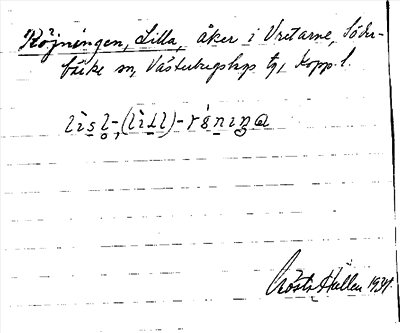 Röjningen, Lilla, åker i Vretarne, Söder-
bärke sn, Västerbergslags tg, Kopp. l.
lìsl-, (lìll)-rö́ninga
Gösta Hallen 1934.